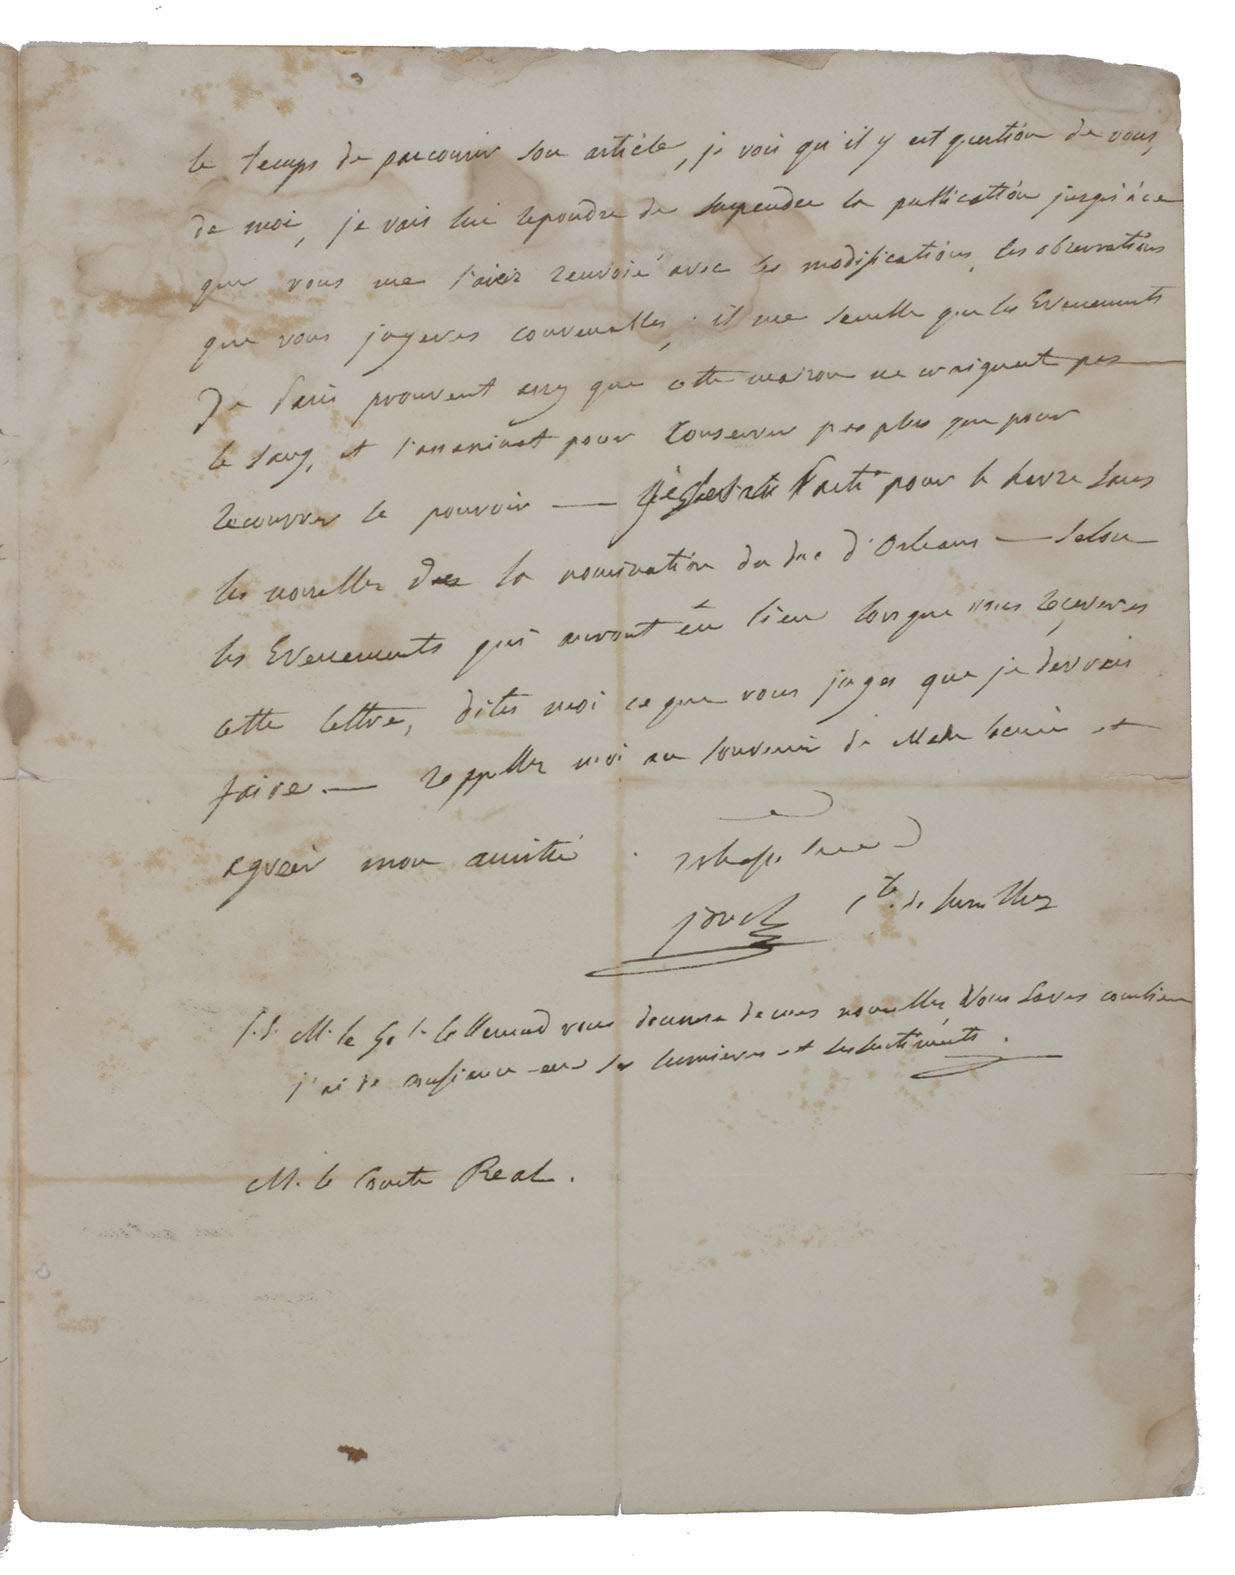 le temps de parcourir son article, je vois qu'il y est question de vous,
de moi, je vais lui repondre de suspendre la publication jusqu'à ce
que vous me l'aiez renvoié avec les modifications, les observations
que vous jugeres convenables, il me semble que les Evenements
De Paris prouvent assez que cette maison ne craignent pas
le sang, et l'assasinat pour conserver pas plus que pour
recouvrer le pouvoir — parti pour le havre sans
les nouvelles de la nomination du duc d'Orleans — selon
les Evenements qui auront eu lieu lorsque vous receveres
cette lettre, dites moi ce que vous juges que je devrois
faire. — rappelles moi au souvenir de Made et
agreer mon amitié.
Joseph Cte. de Survilliers
P.S. M. le Gal. Lallemand vous donnera de mes nouvelles, Vous saves combien
j'ai de confiance en ses lumieres et ses sentiments.
M. le Comte Real.